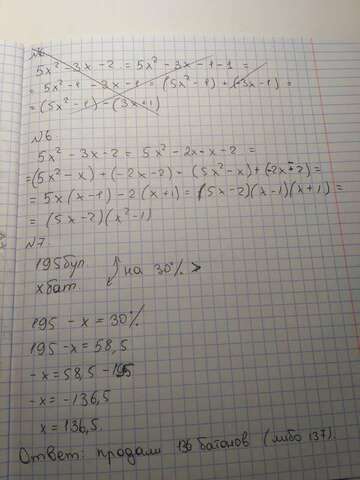 №6
5x² - 3x - 2 = 5x² - 3x - 1 - 1 =
= 5x² - 1 - 3x - 1 = (5x² - 1) + (-3x - 1) =
= (5x² - 1) - (3x + 1)
№6.
5x² - 3x - 2 = 5x² - 2x - x - 2 =
= (5x² - x) + (-2x - 2) = (5x² - x) + (-2x - 2) =
= 5x (x - 1) - 2 (x + 1) = (5x - 2)(x - 1)(x + 1) =
= (5x - 2)(x² - 1)
№7
195 бул
x бат.
на 30% >
195 - x = 30%
195 - x = 58,5
-x = 58,5 - 195
-x = -136,5
x = 136,5.
Ответ: продали 136 батонов (либо 137).